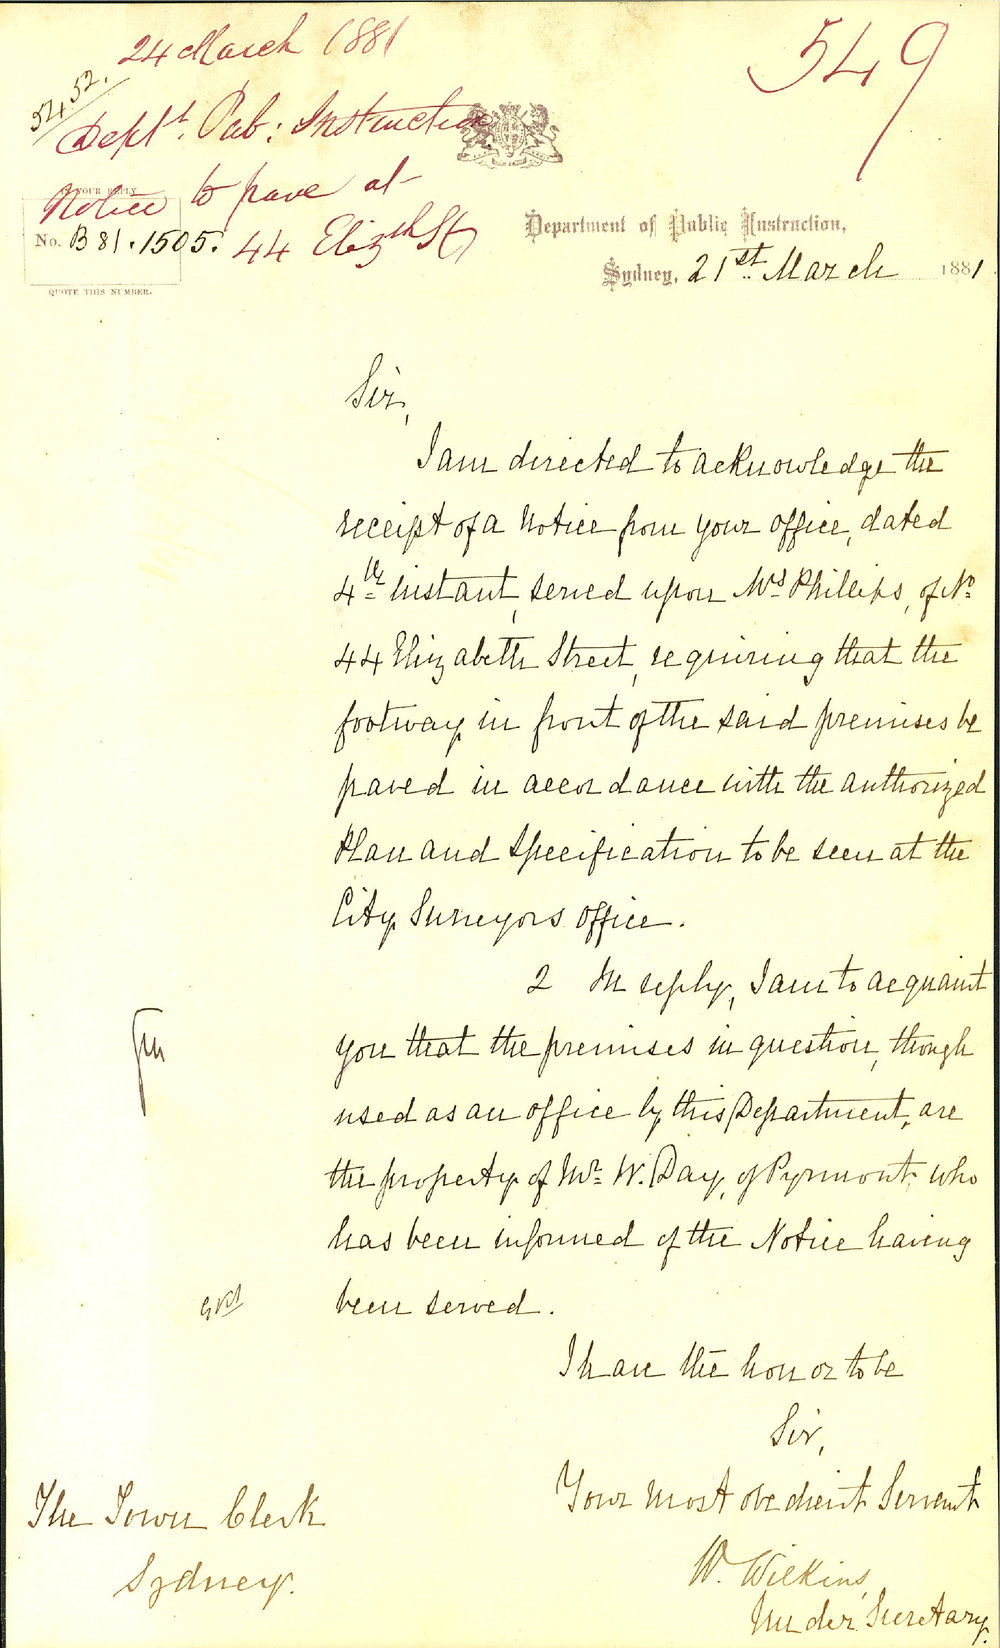 24 March 1881
549
54.52.
Dept. Pub: Instruction
Notice to pave at
44 Elizth St
IN YOUR REPLY
No. B 81.1505.
QUOTE THIS NUMBER.
Department of Public Instruction,
Sydney, 21st March 1881.
Sir,
I am directed to acknowledge the
receipt of a Notice from your office, dated
4th instant, served upon Mrs Phillips, of No.
44 Elizabeth Street, requiring that the
footway in front of the said premises be
paved in accordance with the authorized
Plan and Specification to be seen at the
City Surveyors office.
2 In reply, I am to acquaint
you that the premises in question, though
used as an office by this Department, are
the property of Mr. W. Day, of Pyrmont, who
has been informed of the Notice having
been served.
I have the honor to be
Sir,
Your most obedient Servant
W. Wilkins,
Under Secretary.
The Town Clerk
Sydney.